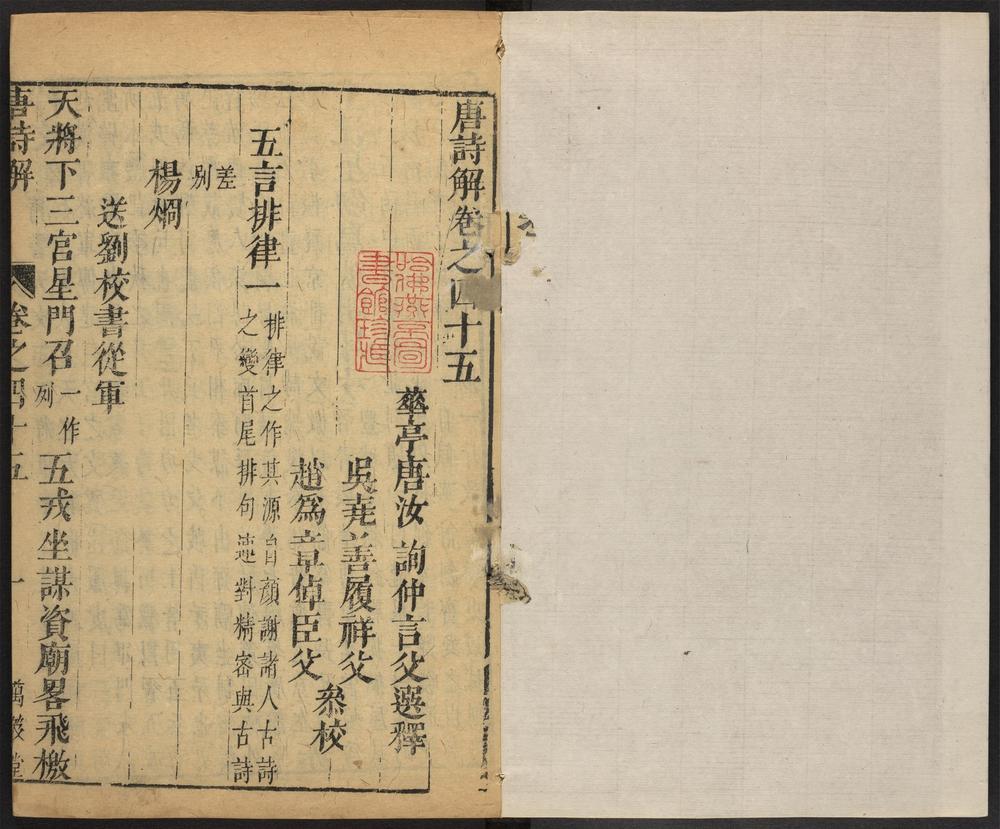 唐詩解卷之四十五
華亭唐汝詢仲言父選釋
吳堯善履祥父
趙爲章倬臣父
參校
五言排律一
排律之作其源自顏謝諸人古詩
之變首尾排句連對精密與古詩
差
別
楊烱
送劉校書從軍
天將下三宮星門召一作列五戎坐謀資廟畧飛檄
唐詩解
卷之四十五
一
萬笈堂
哈佛燕京圖
書館珍藏